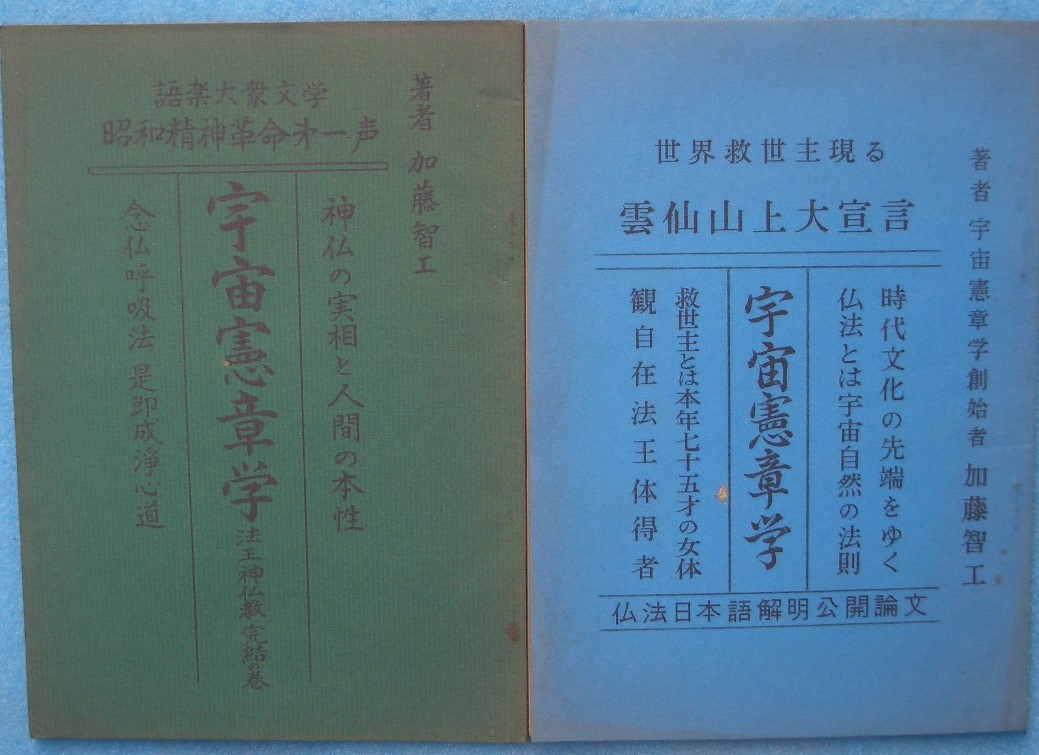 語楽大衆文学
昭和精神革命才一声
著者 加藤智工
神仏の実相と人間の本性
宇宙憲章学 法王神仏教完結の巻
念仏呼吸法 是即成浄心道
世界救世主現る
雲仙山上大宣言
著者 宇宙憲章学創始者 加藤智工
時代文化の先端をゆく
仏法とは宇宙自然の法則
宇宙憲章学
救世主とは本年七十五才の女体
観自在法王体得者
仏法日本語解明公開論文